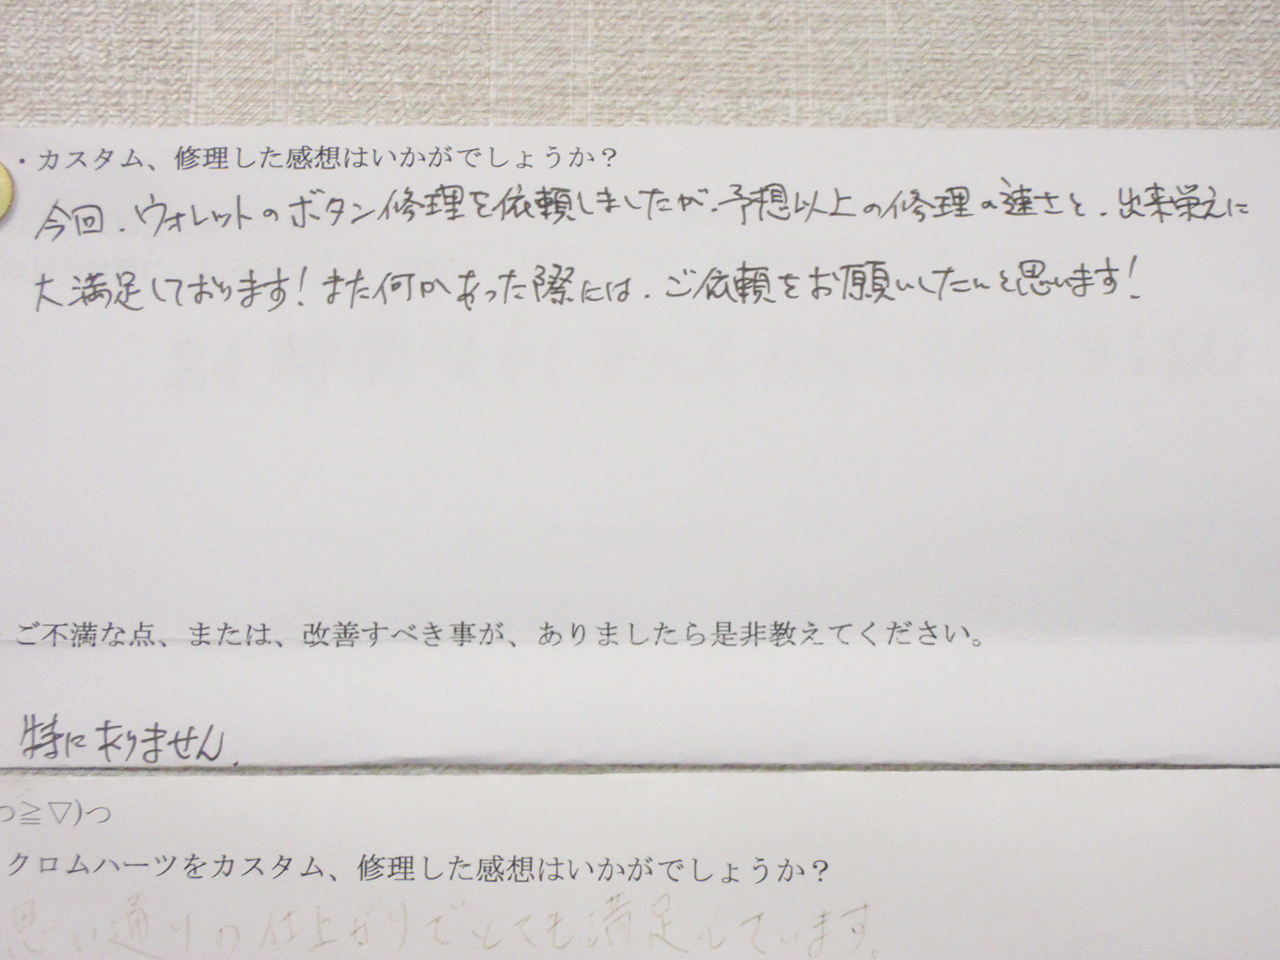 ・カスタム、修理した感想はいかがでしょうか？
今回、ウォレットのボタン修理を依頼しましたが、予想以上の修理の速さと、出来栄えに
大満足しております！また何かあった際には、ご依頼をお願いしたいと思います！
ご不満な点、または、改善すべき事が、ありましたら是非教えてください。
特にありません。
つ≧▽)つ
クロムハーツをカスタム、修理した感想はいかがでしょうか？
思い通りの仕上がりでとても満足しています。